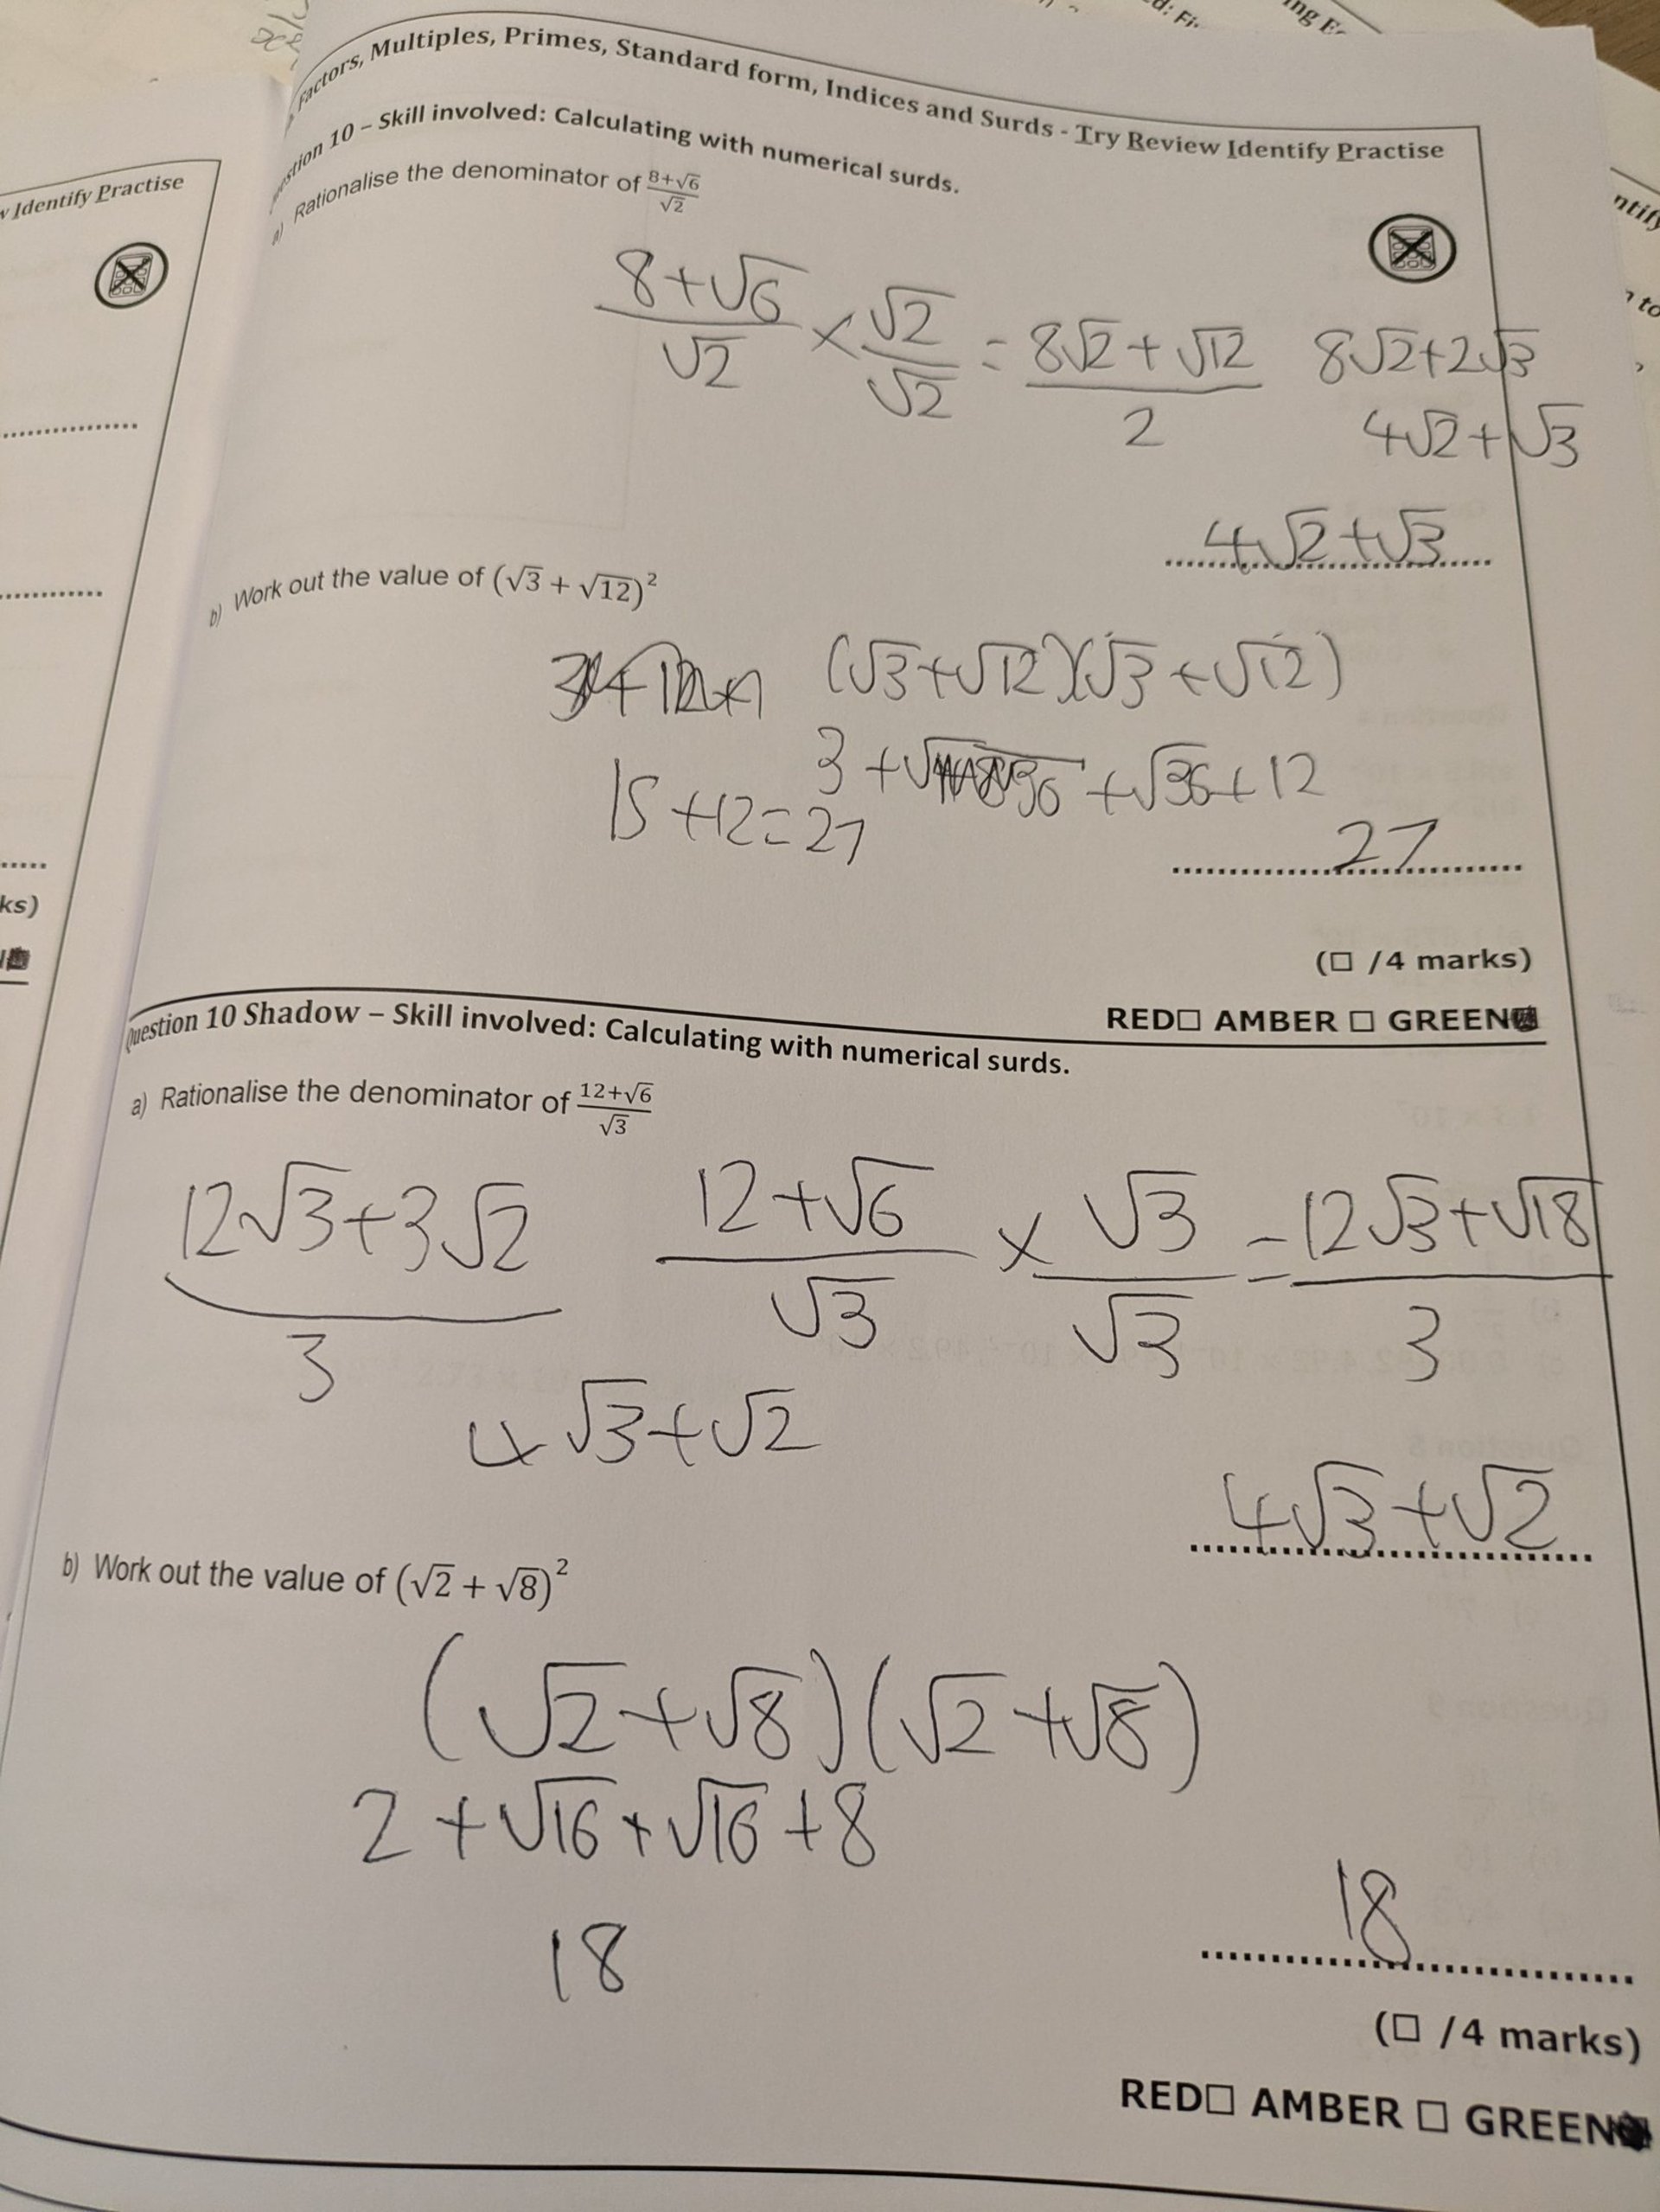 Factors, Multiples, Primes, Standard form, Indices and Surds - Try Review Identify Practise
Question 10 – Skill involved: Calculating with numerical surds.
a) Rationalise the denominator of (8+√6)/√2
(8+√6)/√2 × √2/√2 = (8√2+√12)/2
8√2+2√3
4√2+√3
4√2+√3
b) Work out the value of (√3 + √12)²
(√3+√12)(√3+√12)
3+√36+√36+12
15+12=27
27
(☐ /4 marks)
RED☐ AMBER ☐ GREEN
Question 10 Shadow – Skill involved: Calculating with numerical surds.
a) Rationalise the denominator of (12+√6)/√3
(12+√6)/√3 × √3/√3 = (12√3+√18)/3
(12√3+3√2)/3
4√3+√2
4√3+√2
b) Work out the value of (√2 + √8)²
(√2+√8)(√2+√8)
2+√16+√16+8
18
18
(☐ /4 marks)
RED☐ AMBER ☐ GREEN
Identify Practise
ks)